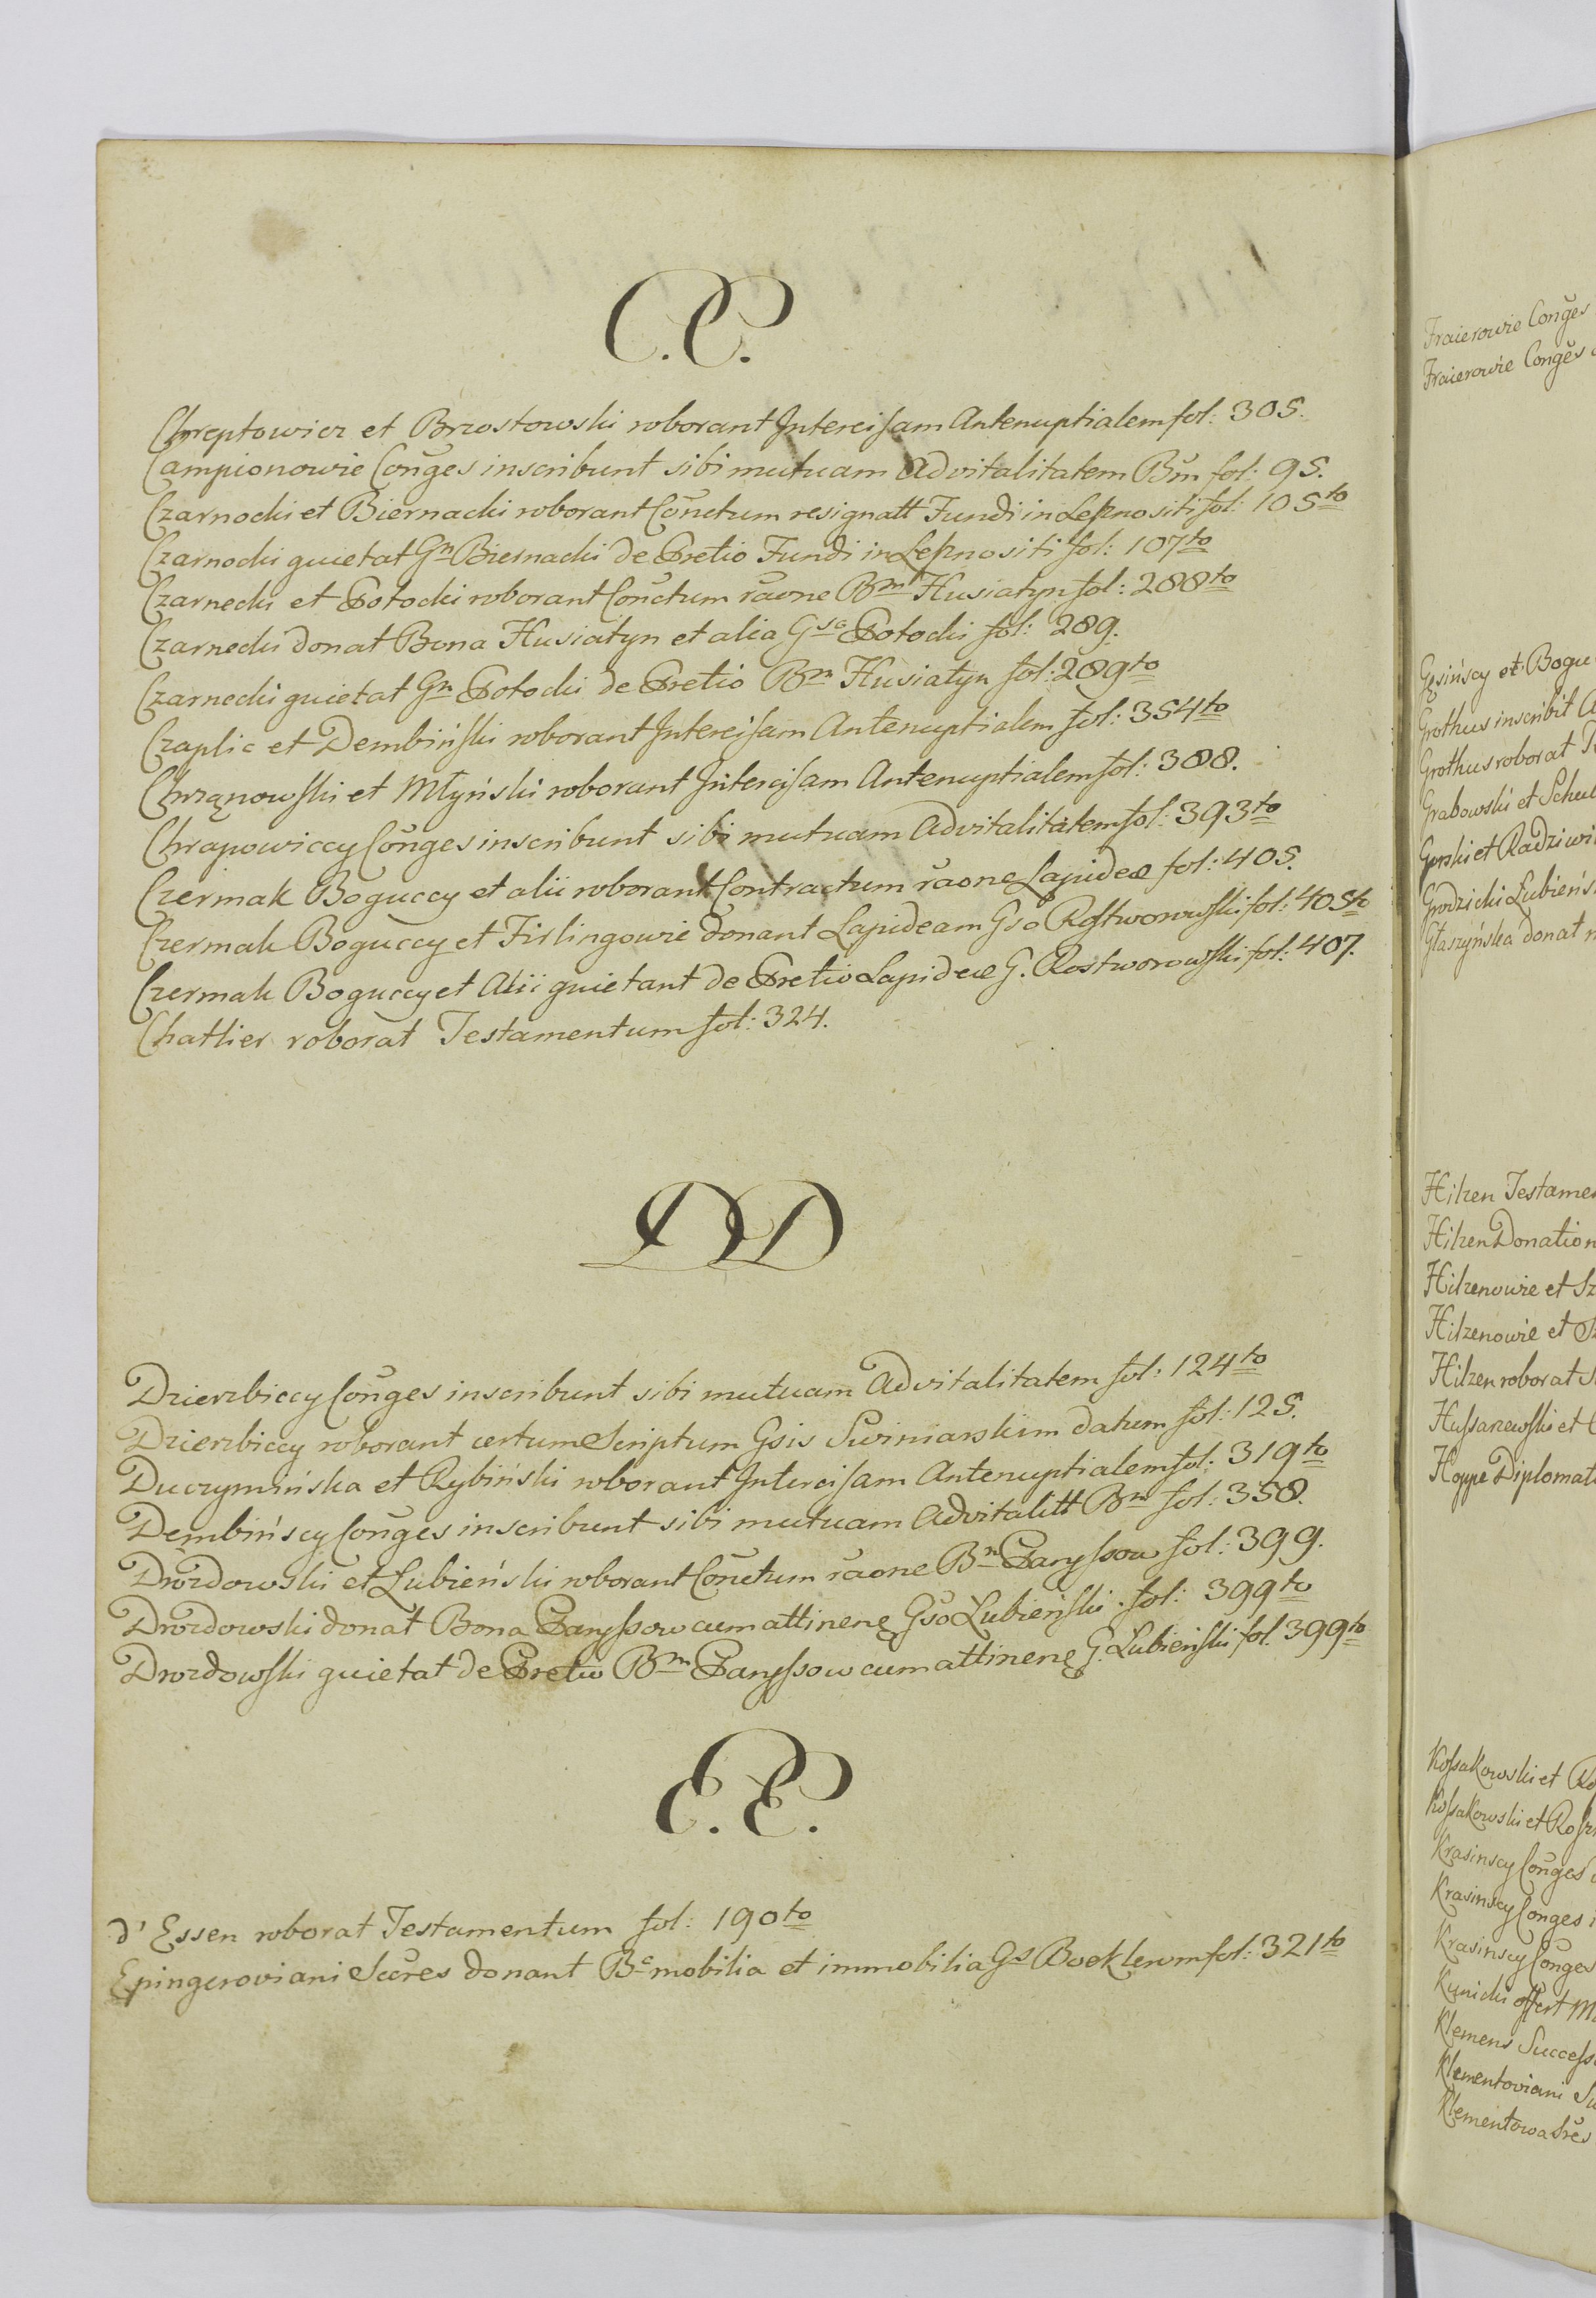 C.C.
Chreptowicz et Brzostowski roborant Intercisam Antenuptialem fol: 305.
Campionowie Conges inscribunt sibi mutuam Advitalitatem Bm fol: 95.
Czarnocki et Biernacki roborant Conctum resignatt Fundi in Leszno siti fol: 105to
Czarnocki quietat Gn Biernacki de Pretio Fundi in Leszno siti fol: 107to
Czarnecki et Potocki roborant Conctum raone Bm Husiatyn fol: 288to
Czarnecki donat Bona Husiatyn et alia Gso Potocki fol: 289.
Czarnecki quietat Gn Potocki de Pretio Bm Husiatyn fol: 289to
Czaplic et Dembiński roborant Intercisam Antenuptialem fol: 354to
Chrzanowski et Młyński roborant Intercisam Antenuptialem fol: 388.
Chrapowiccy Conges inscribunt sibi mutuam Advitalitatem fol: 393to
Czermak Boguccy et alii roborant Contractum raone Lapideæ fol: 405.
Czermak Boguccy et Firlingowie donant Lapideam Gso Rostworowski fol: 405to
Czermak Boguccy et Alii quietant de Pretio Lapideæ G. Rostworowski fol: 407.
Chatlier roborat Testamentum fol: 324.
DD
Dzierzbiccy Conges inscribunt sibi mutuam Advitalitatem fol: 124to
Dzierzbiccy roborant certum Scriptum Gsis Swiniarskim datum fol: 125.
Duczymińska et Rybiński roborant Intercisam Antenuptialem fol: 319to
Dembińscy Conges inscribunt sibi mutuam Advitalitt Bm fol: 358.
Drozdowski et Łubieński roborant Conctum raone Bn Paryssow fol: 399.
Drozdowski donat Bona Paryssow cum attinenę Gso Łubieński fol: 399to
Drozdowski quietat de Pretio Bm Paryssow cum attinenę G. Łubieński fol. 399to
E.E.
d' Essen roborat Testamentum fol: 190to
Epingeroviani Sccres donant Be mobilia et immobilia Gs Bocklerom fol: 321to
Fraierowie Conges
Fraierowie Conges
Gęsińscy et Bogu
Grothus inscribit A
Grothus roborat
Grabowski et Schul
Gorski et Radziwi
Grodzicki Łubieńs
Głaszyńska donat
Hilzen Testame
Hilzen Donation
Hilzenowie et Sz
Hilzenowie et
Hilzen roborat
Hussarzewski et
Hoppe Diplomat
Kossakowski et
Kossakowski et
Krasinscy Conges
Krasinscy Conges
Krasinscy Conges
Kunicki offert
Klemens Success
Klementoviani
Klementowa Sres